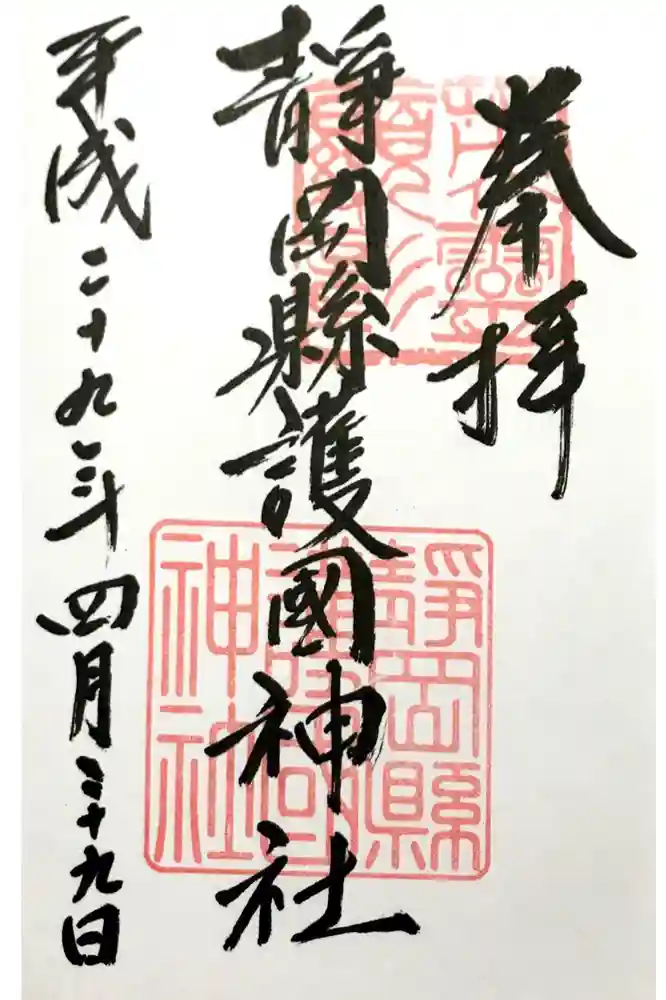 奉拝
靜岡縣護國神社
平成二十九年四月二十九日
英靈顯彰
靜岡縣護國神社